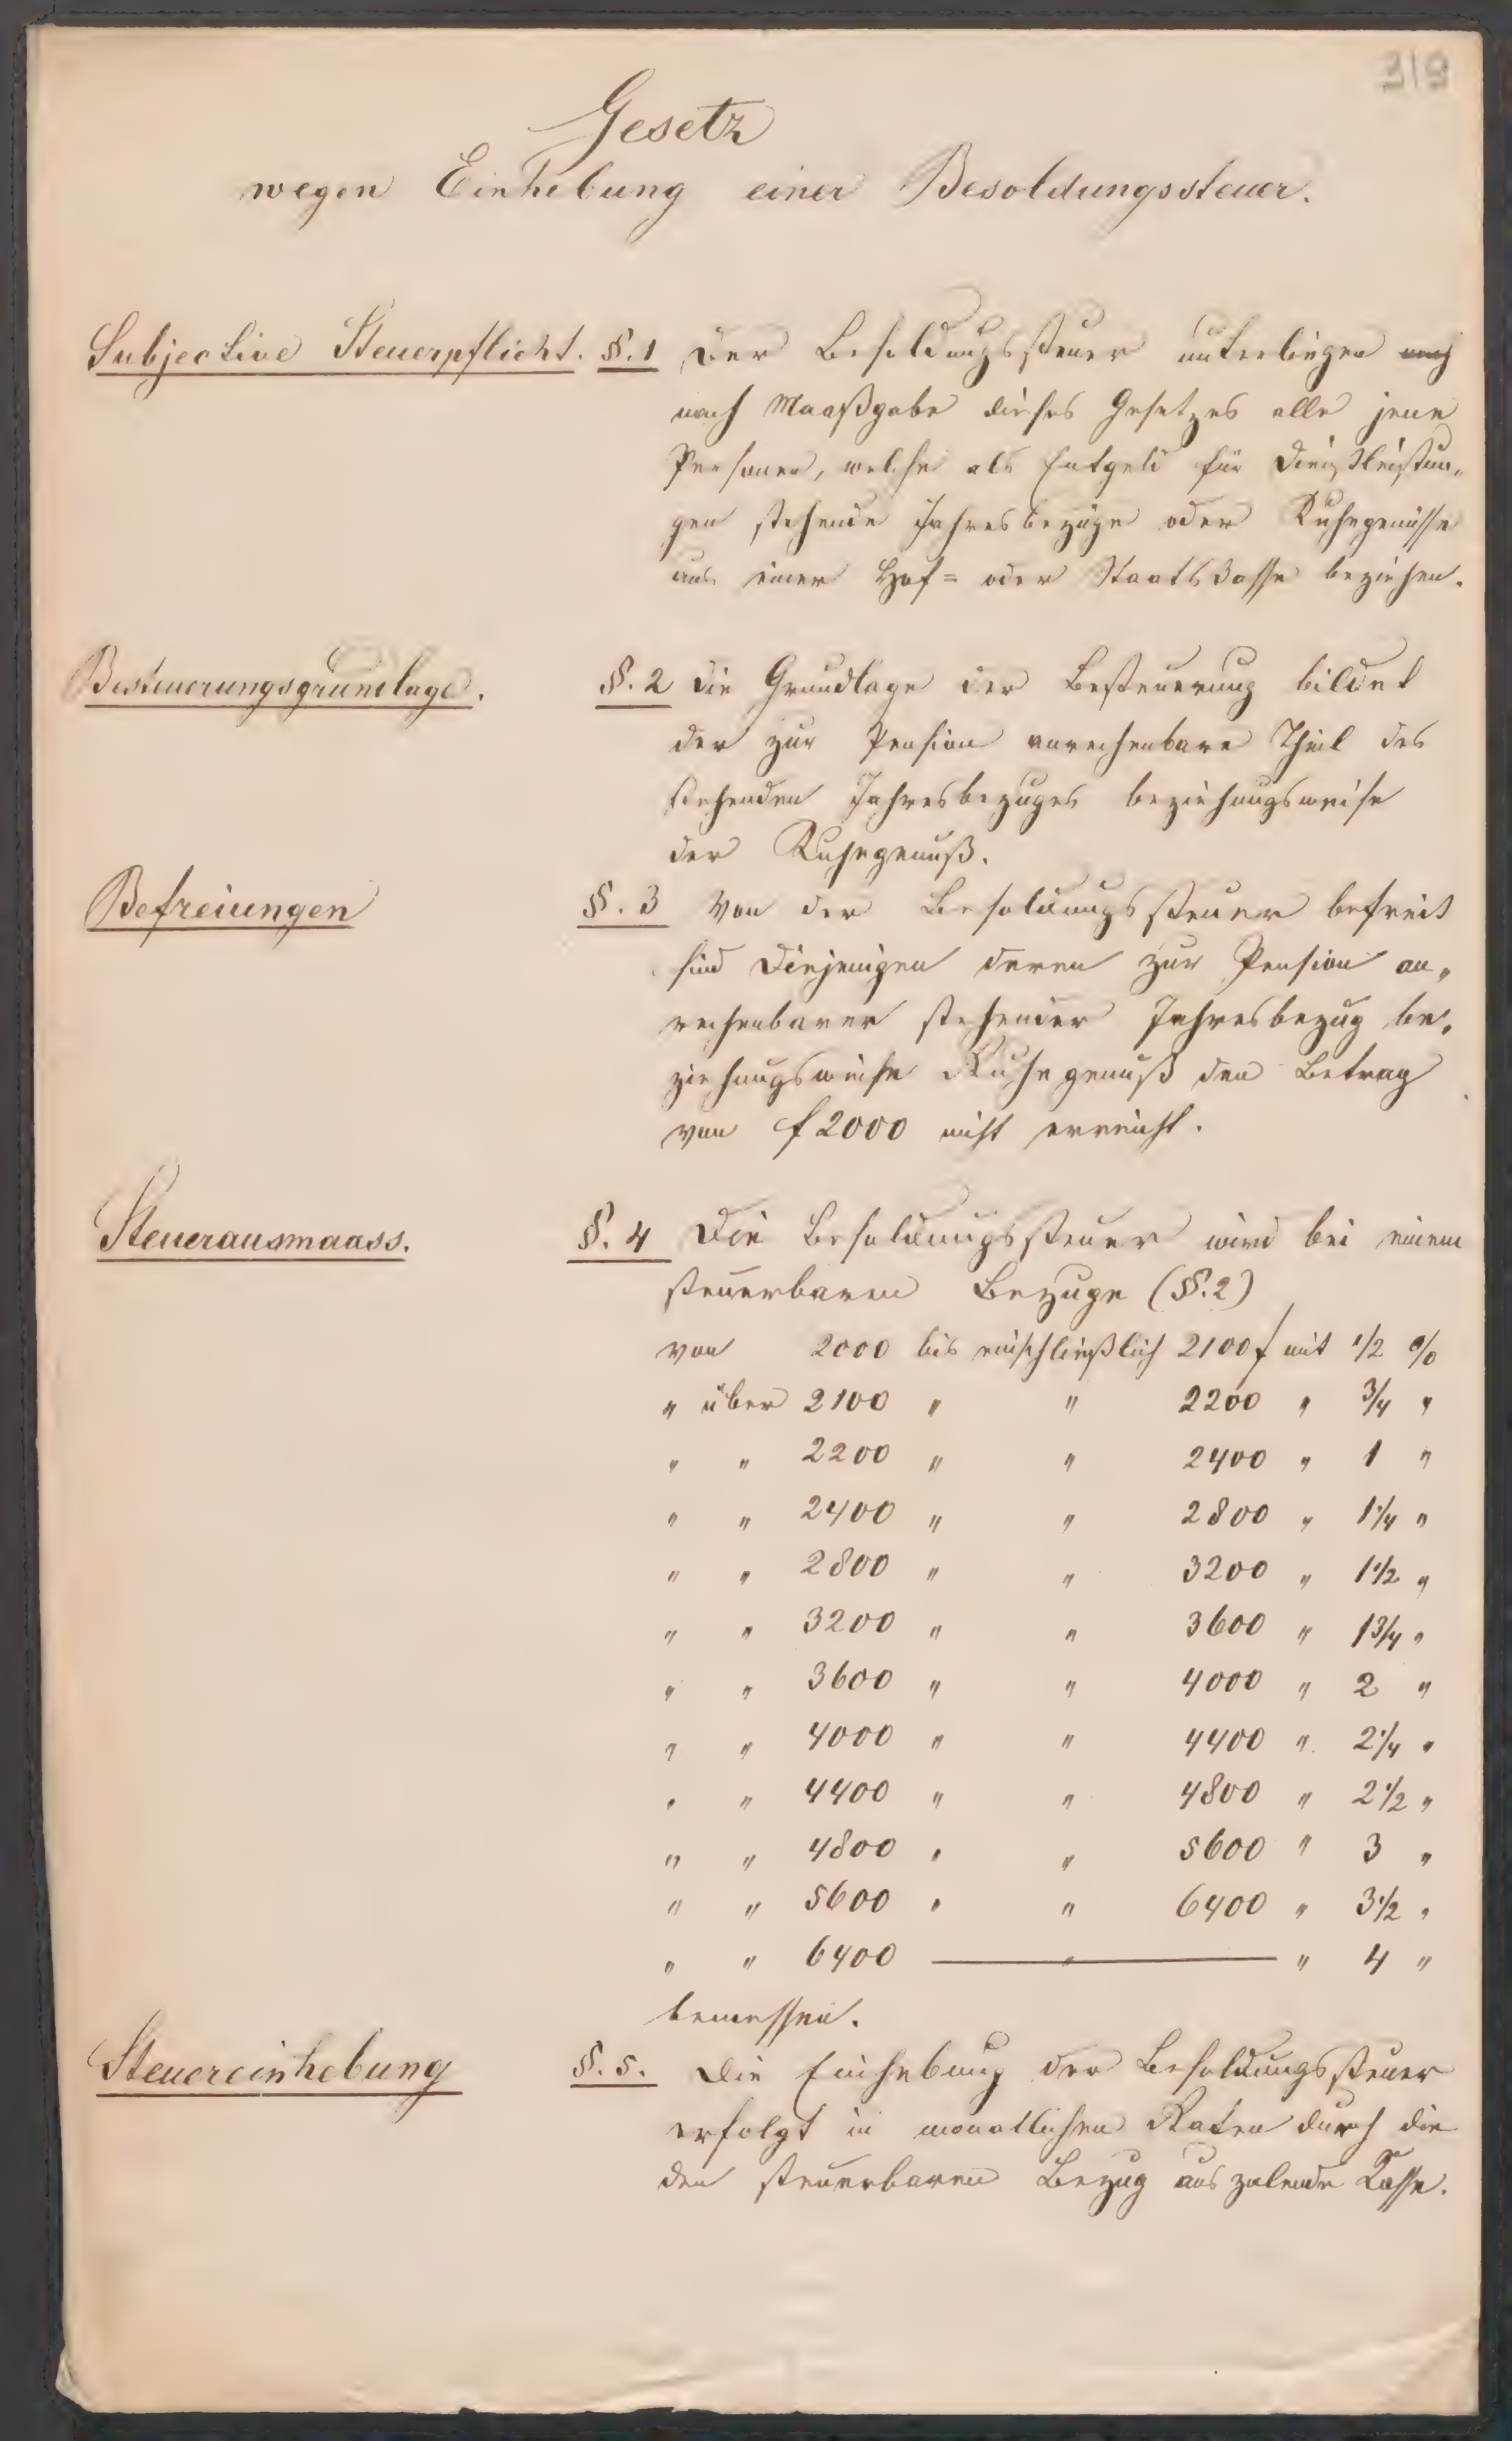 319
Gesetz
wegen Einhebung einer Besoldungssteuer.
Subjective Steuerpflicht. §. 1 Der Besoldungssteuer unterliegen
nach Maaßgabe dieses Gesetzes alle jene
Personen, welche als Entgeld für Dienstleistun„
gen stehende Jahresbezüge oder Ruhegenüsse
aus einer Hof= oder Staatskasse beziehen.
Besteuerungsgrundlage. §. 2 Die Grundlage der Besteuerung bildet
der zur Pension anrechenbare Theil des
stehenden Jahresbezuges beziehungsweise
der Ruhegenuß.
Befreiungen §. 3 Von der Besoldungssteuer befreit
sind Diejenigen deren zur Pension an„
rechenbarer stehender Jahresbezug be„
ziehungsweise Ruhegenuß den Betrag
von f 2000 nicht erreicht.
Steuerausmaass. §. 4 Die Besoldungssteuer wird bei einem
steuerbaren Bezuge (§. 2)
von 2000 bis einschließlich 2100 f mit 1/2 %
" über 2100 " " 2200 " 3/4 "
" " 2200 " " 2400 " 1 "
" " 2400 " " 2800 " 1 1/4 "
" " 2800 " " 3200 " 1 1/2 "
" " 3200 " " 3600 " 1 3/4 "
" " 3600 " " 4000 " 2 "
" " 4000 " " 4400 " 2 1/4 "
" " 4400 " " 4800 " 2 1/2 "
" " 4800 " " 5600 " 3 "
" " 5600 " " 6400 " 3 1/2 "
" " 6400 — " — " 4 "
bemessen.
Steuereinhebung §. 5. Die Einhebung der Besoldungssteuer
erfolgt in monatlichen Raten durch die
den steuerbaren Bezug auszalende Kasse.